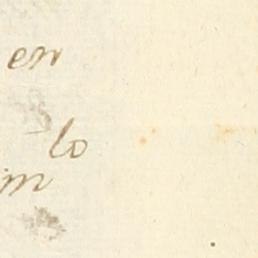 en
lo
m